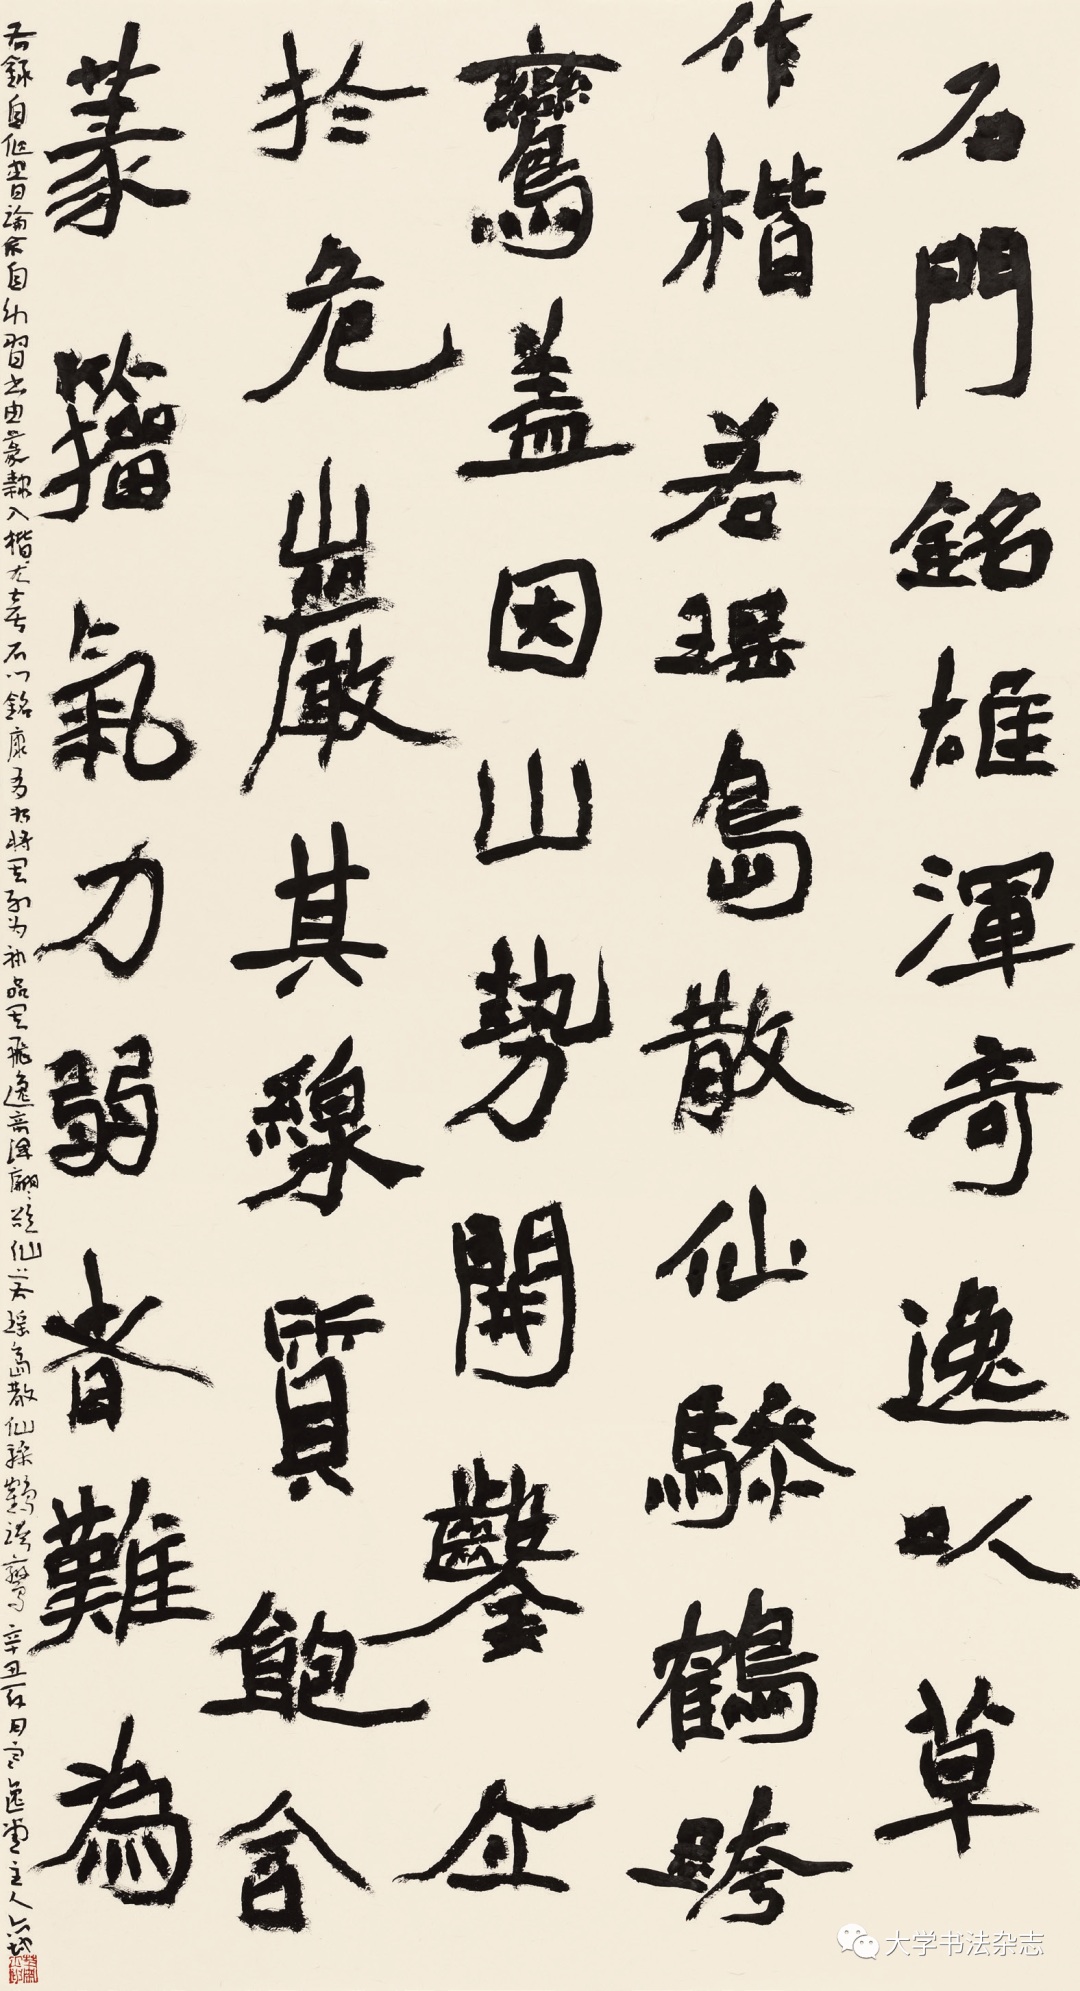 石門銘雄渾奇逸以草
作楷若瑶島散仙驂鶴跨
鸞盖因山勢開鑿企
於危巖其線質飽含
篆籀氣力弱者難為
右録自作書論余自幼習書由篆隸入楷尤喜石門銘康有為將其列為神品其飛逸奇渾翩翩欲仙若瑶島散仙驂鶴跨鸞辛丑
逸堂主人
大学书法杂志